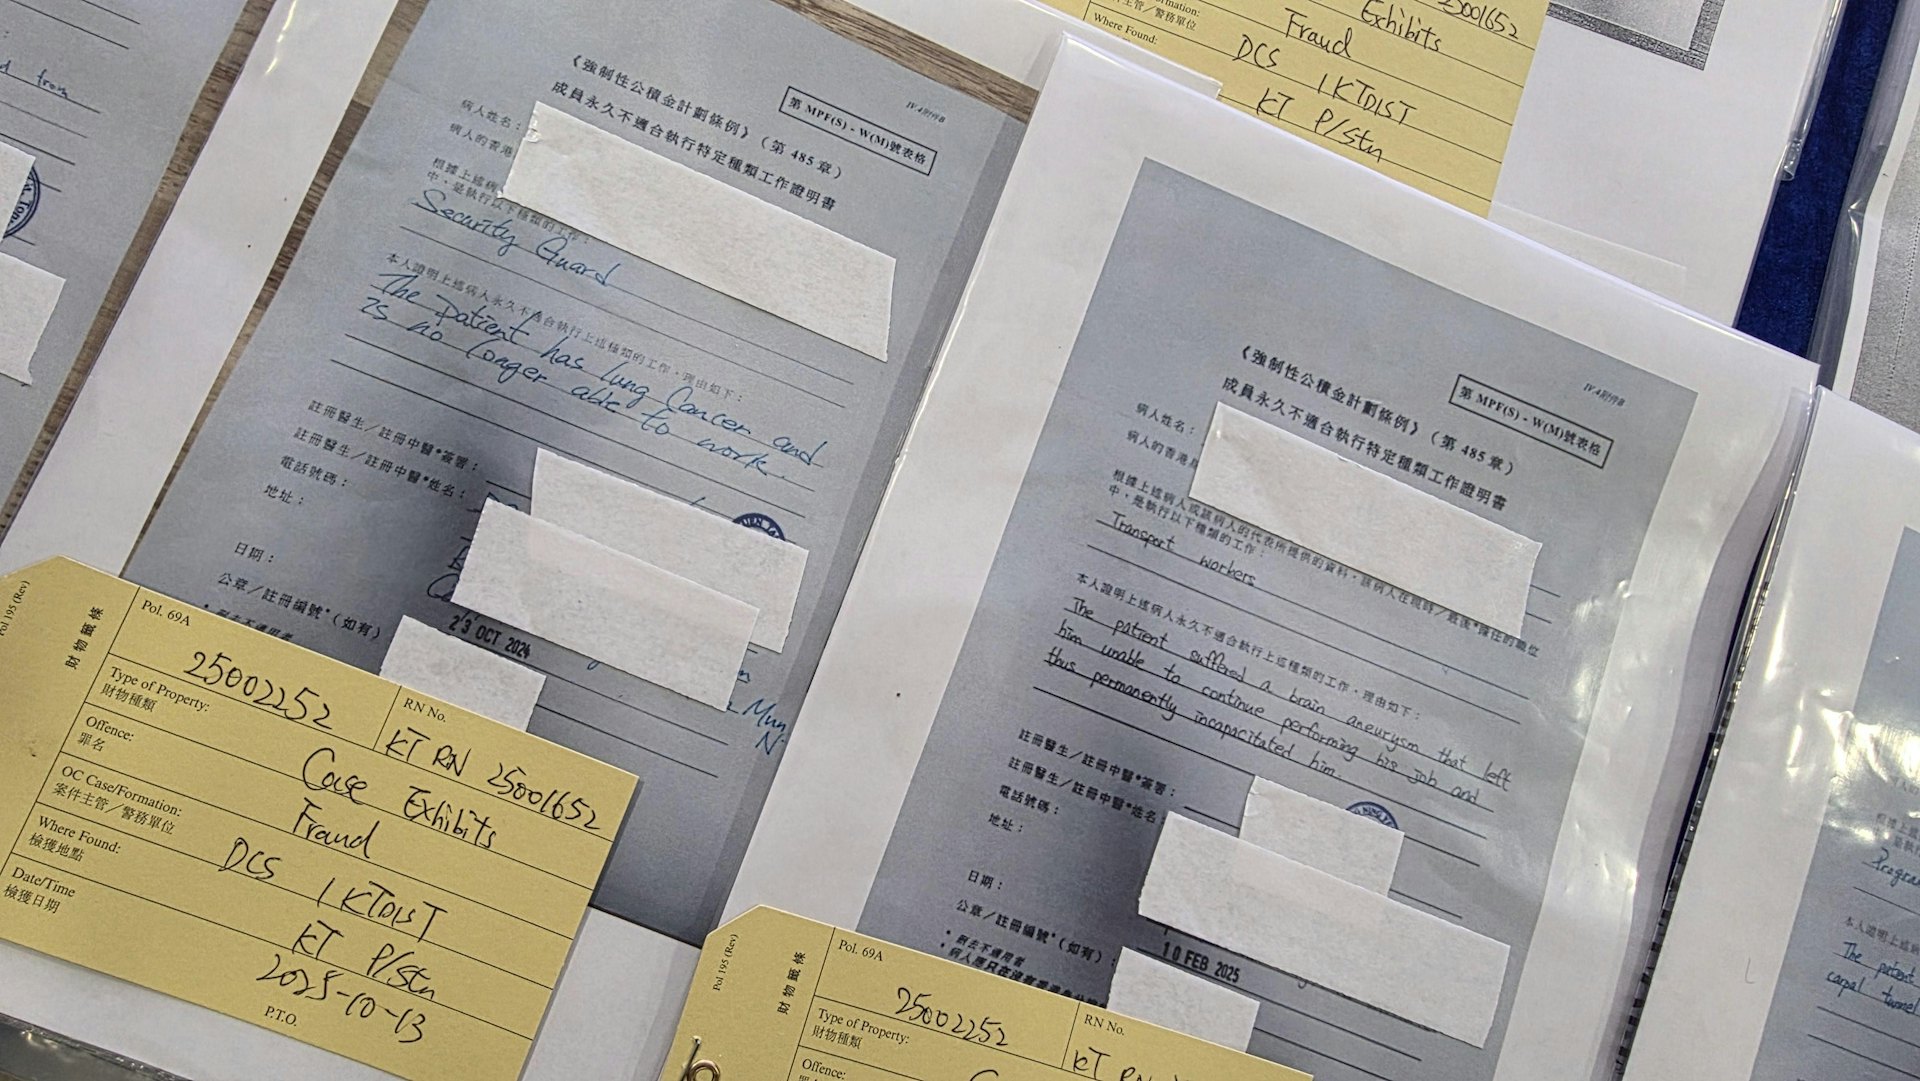 d from
《強制性公積金計劃條例》（第 485 章）
成員永久不適合執行特定種類工作證明書
第 MPF(S) - W(M)號表格
IV.4附件B
病人姓名：
病人的香港
根據上述病
中，是執行以下種類的工作：
Security Guard
本人證明上述病人永久不適合執行上述種類的工作，理由如下：
The patient has lung cancer and
is no longer able to work.
註冊醫生／註冊中醫*簽署：
註冊醫生／註冊中醫*姓名：
電話號碼：
地址：
日期：
23 OCT 2024
公章／註冊編號*（如有）
* 刪去不適用者
Pol 195 (Rev)
財物籤條
Pol. 69A
25002252
RN No.
KT RN 25001652
Type of Property:
財物種類
Case Exhibits
Offence:
罪名
Fraud
OC Case/Formation:
案件主管／警務單位
DCS 1 KTDIST
Where Found:
檢獲地點
KT P/Stn
Date/Time
檢獲日期
2025-10-13
P.T.O.
25001652
Exhibits
Fraud
Formation:
件主管／警務單位
DCS 1 KTDIST
Where Found:
KT P/Stn
《強制性公積金計劃條例》（第 485 章）
成員永久不適合執行特定種類工作證明書
第 MPF(S) - W(M)號表格
IV.4附件B
病人姓名：
病人的香港
根據上述病人或該病人的代表所提供的資料，該病人在現時／最後*擔任的職位
中，是執行以下種類的工作：
Transport workers
本人證明上述病人永久不適合執行上述種類的工作，理由如下：
The patient suffered a brain aneurysm that left
him unable to continue performing his job and
thus permanently incapacitated him.
註冊醫生／註冊中醫*簽署：
註冊醫生／註冊中醫*姓名
電話號碼：
地址：
日期：
10 FEB 2025
公章／註冊編號*（如有）：
* 刪去不適用者
Pol 195 (Rev)
財物籤條
Pol. 69A
25002252
RN No.
KT RN
Type of Property:
財物種類
Offence:
本人證明上述病
The patient
carpal tunnel